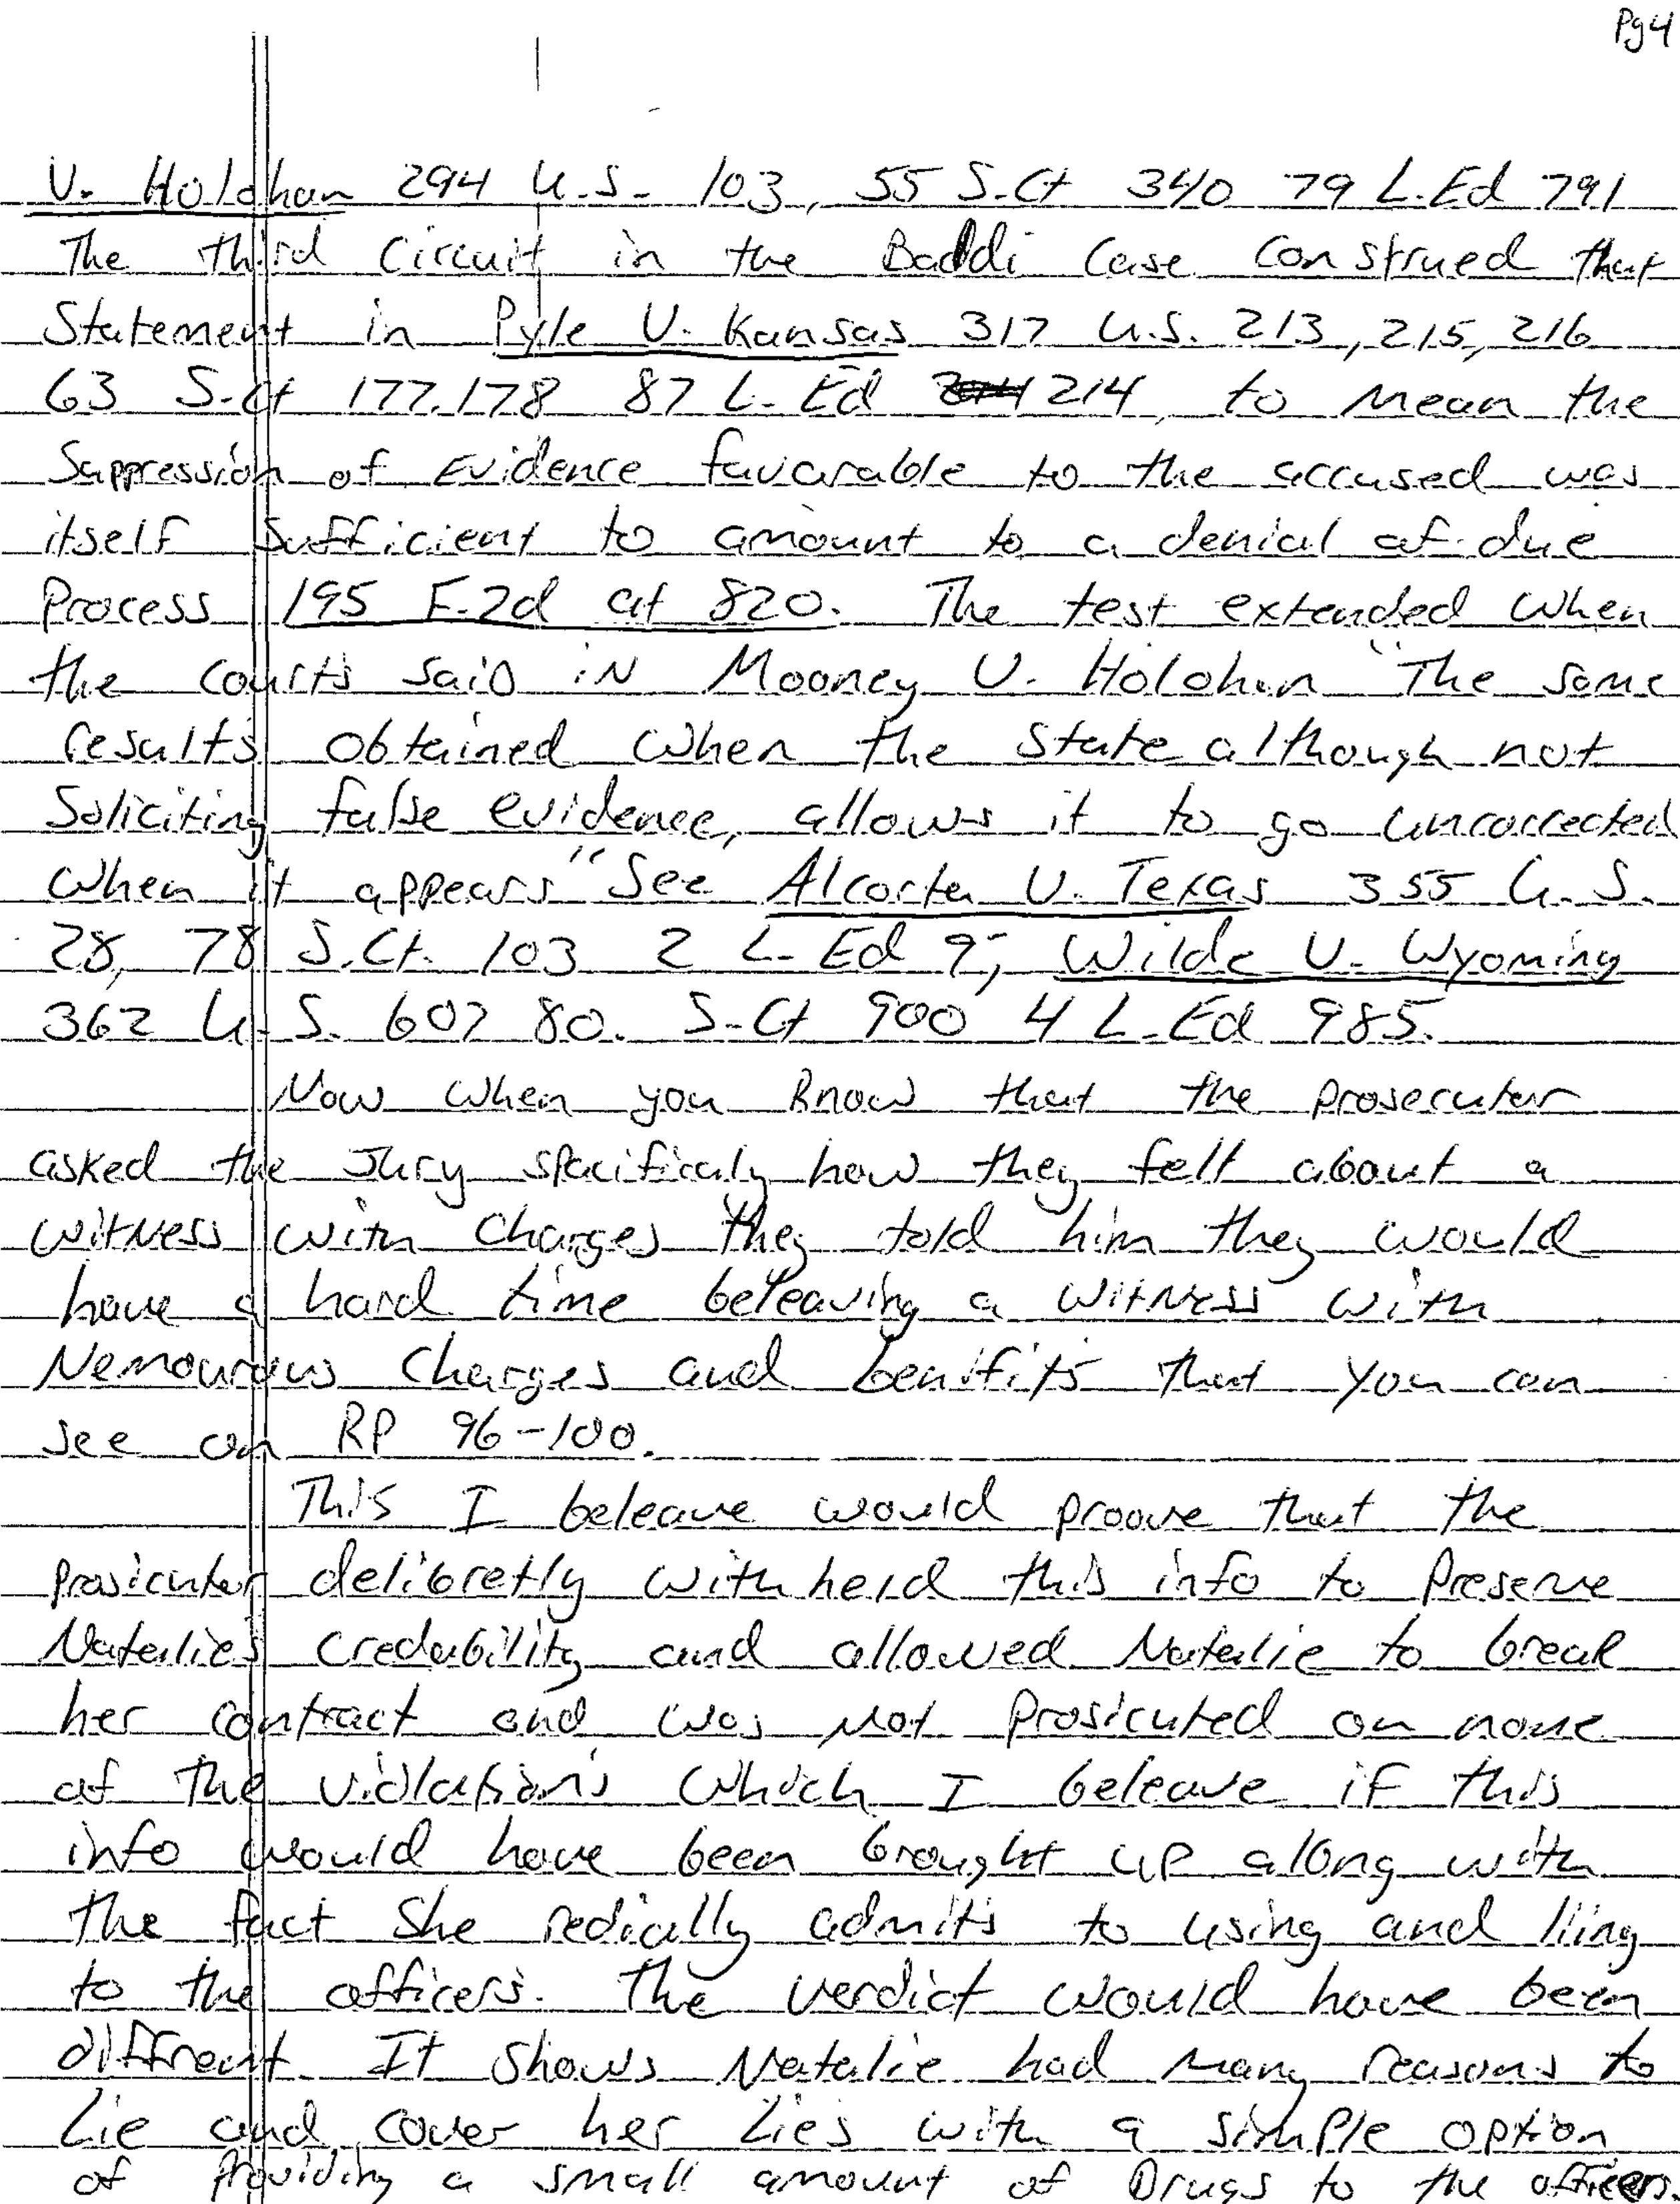 Pg 4
V. Holohan 294 U.S. 103, 55 S.Ct 340 79 L.Ed 791
The third Circuit in the Baddi Case Construed that
Statement in Pyle V. Kansas 317 U.S. 213, 215, 216
63 S.Ct 177.178 87 L.Ed 214, to Mean the
Suppression of Evidence favorable to the accused was
itself Sufficient to amount to a denial of due
Process 195 F.2d at 820. The test extended when
the courts said iN Mooney V. Holohan "The same
results obtained when the State although not
Soliciting false evidence, allows it to go uncorrected
when it appears" See Alcorta V. Texas 355 U.S.
28, 78 S.Ct. 103 2 L.Ed 9; Wilde V. Wyoming
362 U.S. 607 80. S.Ct 900 4 L.Ed 985.
Now when you know that the prosecutor
asked the Jury spacificaly how they felt about a
witness with Charges they told him they would
have a hard time beleaving a witness with
Nemourous Charges and benifits that you can
see on RP 96-100.
This I beleave would proove that the
prosicuter delibretly withheld this info to Preserve
Natalies Credability and allowed Natalie to break
her contract and was not Prosicuted on none
of the violations which I beleave if this
info would have been brought up along with
the fact She redically admits to using and liing
to the officers. The verdict would have been
diffrent. It shows Natalie had many reasons to
Lie and cover her Lies with a simple option
of Providing a small amount of Drugs to the officers.